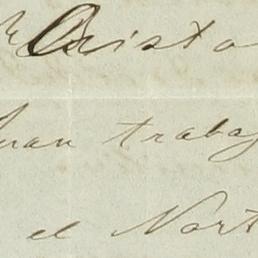 Crista
Juan trabaj
el Nort